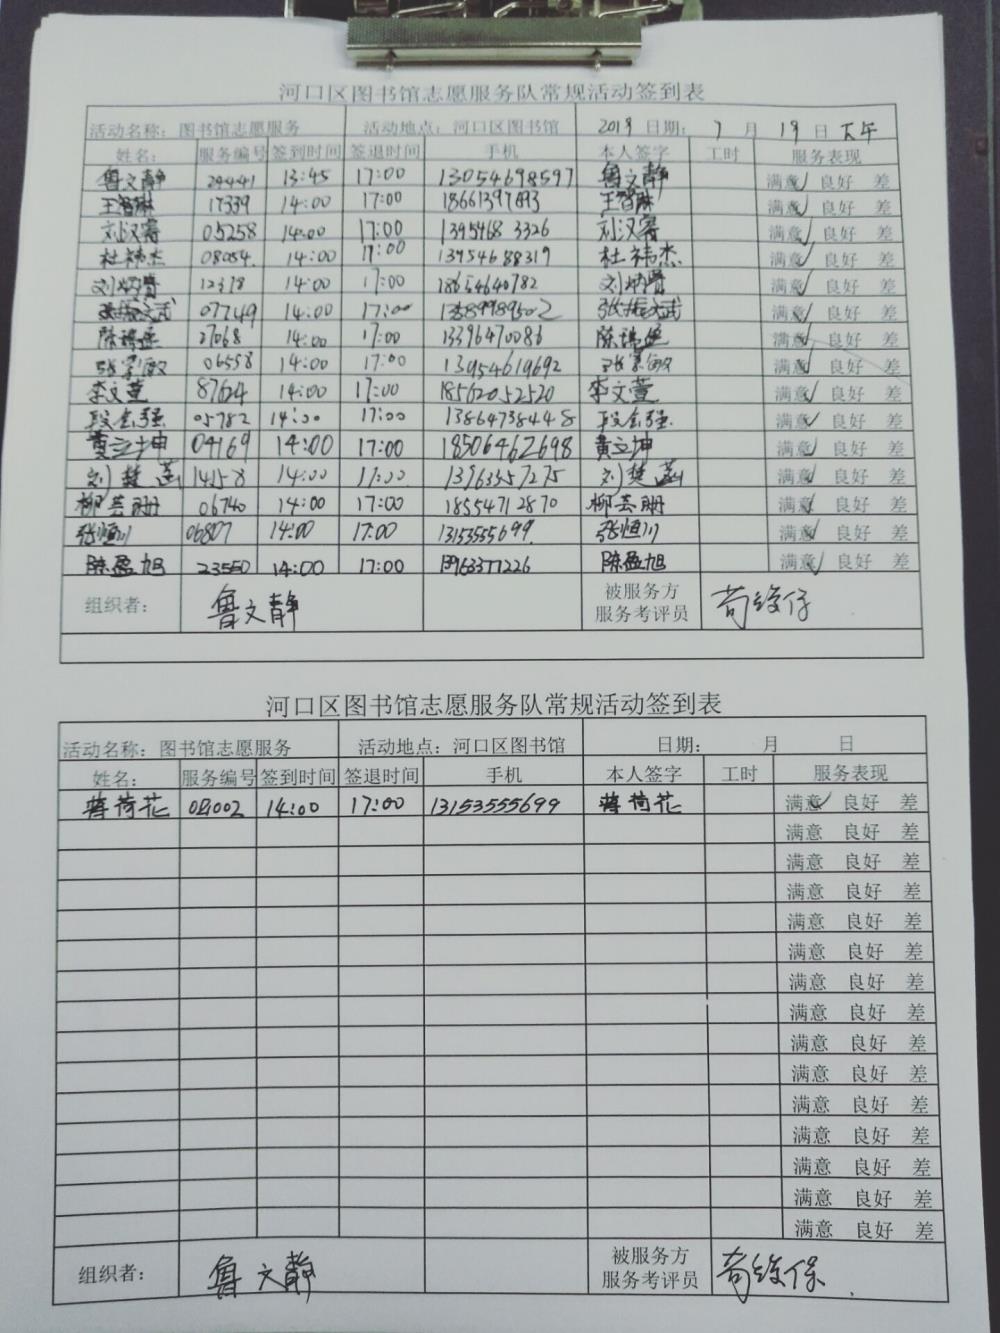 河口区图书馆志愿服务队常规活动签到表
活动名称：图书馆志愿服务 活动地点：河口区图书馆 2019 日期： 7 月 19 日 下午
姓名： 服务编号 签到时间 签退时间 手机 本人签字 工时 服务表现
鲁文静 24441 13:45 17:00 13054698597 鲁文静 满意✓ 良好 差
王智琳 17339 14:00 17:00 王智琳 满意✓ 良好 差
刘汉霄 05258 14:00 17:00 1395468 3326 刘汉霄 满意✓ 良好 差
杜祎杰 08054 14:00 17:00 13954688319 杜祎杰 满意✓ 良好 差
刘炳贤 12378 14:00 17:00 18654640782 刘炳贤 满意✓ 良好 差
07749 14:00 17:00 满意✓ 良好 差
27068 14:00 17:00 13396470086 满意✓ 良好 差
06558 14:00 17:00 13954619692 满意✓ 良好 差
李文萱 87624 14:00 17:00 18562052520 李文萱 满意✓ 良好 差
段金强 05782 14:00 17:00 13864738448 段金强 满意✓ 良好 差
黄立坤 04169 14:00 17:00 18506462698 黄立坤 满意✓ 良好 差
刘楚菡 14158 14:00 17:00 13963357275 刘楚菡 满意✓ 良好 差
柳芸珊 06740 14:00 17:00 18554712870 柳芸珊 满意✓ 良好 差
张恒川 06807 14:00 17:00 13153555699 张恒川 满意✓ 良好 差
陈盈旭 23550 14:00 17:00 陈盈旭 满意✓ 良好 差
组织者： 鲁文静 被服务方
服务考评员
河口区图书馆志愿服务队常规活动签到表
活动名称：图书馆志愿服务 活动地点：河口区图书馆 日期： 月 日
姓名： 服务编号 签到时间 签退时间 手机 本人签字 工时 服务表现
薄荷花 14:00 17:00 13153555699 薄荷花 满意✓ 良好 差
满意 良好 差
满意 良好 差
满意 良好 差
满意 良好 差
满意 良好 差
满意 良好 差
满意 良好 差
满意 良好 差
满意 良好 差
满意 良好 差
满意 良好 差
满意 良好 差
满意 良好 差
满意 良好 差
组织者： 鲁文静 被服务方
服务考评员